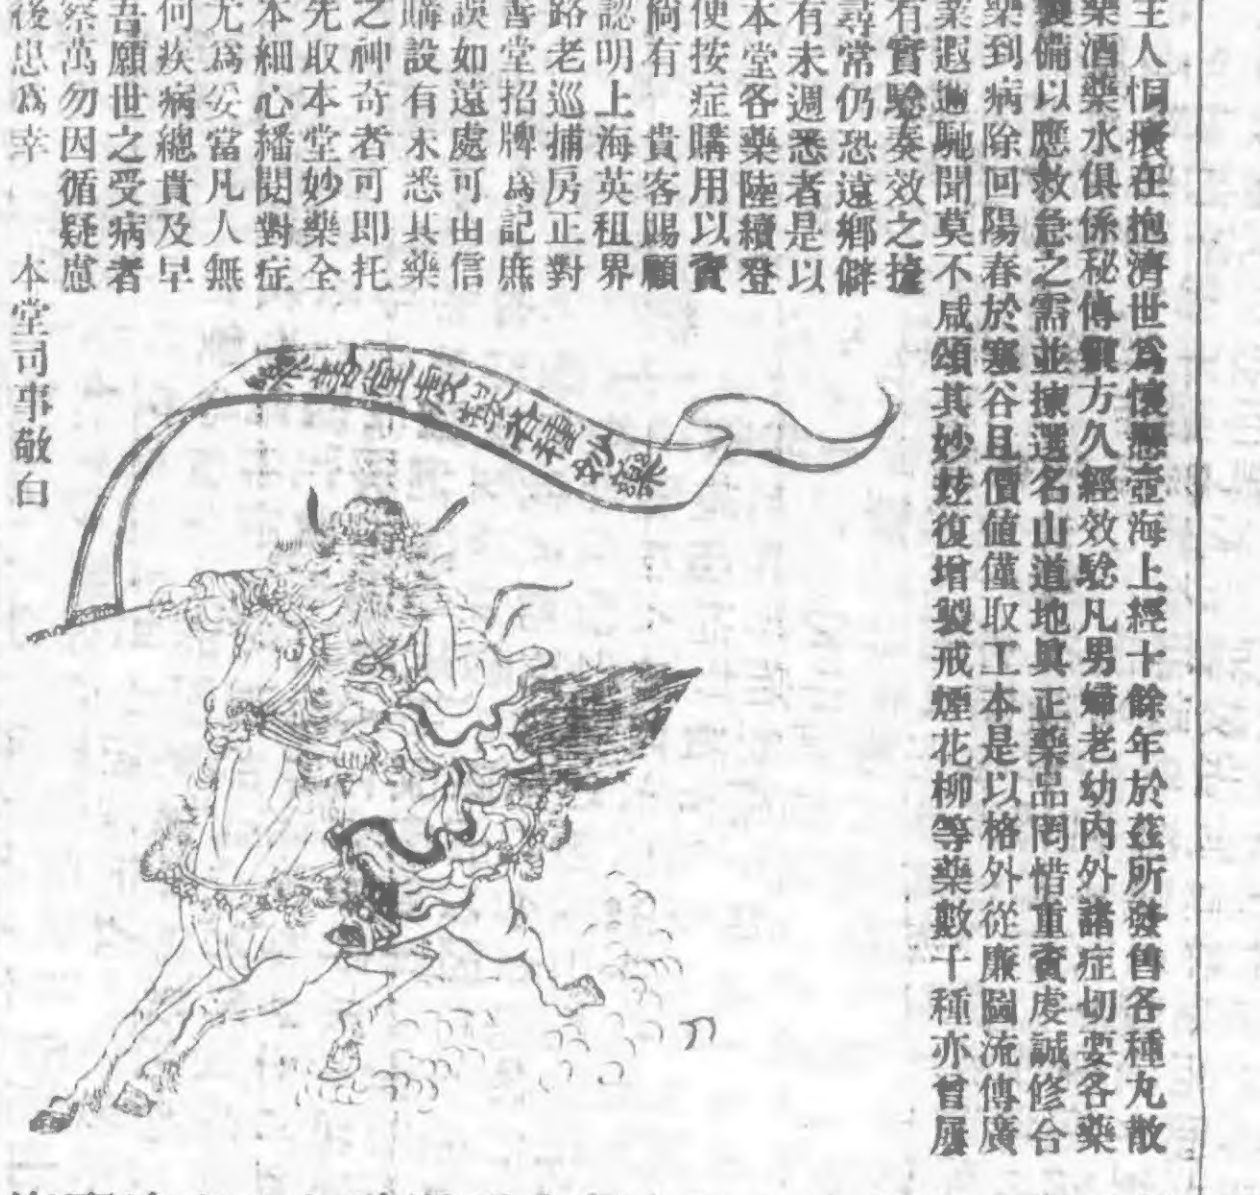 主人恫瘝在抱濟世爲懷懸壺海上經十餘年於茲所發售各種丸散
藥酒藥水俱係秘傳驗方久經效騐凡男婦老幼內外諸症切要各藥
製備以應救急之需並揀選名山道地眞正藥品罔惜重資虔誠修合
藥到病除回陽春於寒谷且價値僅取工本是以格外從廉圖流傳廣
業遐邇馳聞莫不咸頌其妙玆復增製戒煙花柳等藥數十種亦曾屢
有實騐奏效之捷
尋常仍恐遠鄉僻
有未週悉者是以
本堂各藥陸續登
便按症購用以資
倘有 貴客賜顧
認明上海英租界
路老巡捕房正對
善堂招牌爲記庶
誤如遠處可由信
購設有未悉其藥
之神奇者可即托
先取本堂妙藥全
本細心繙閱對症
尤爲妥當凡人無
何疾病總貴及早
吾願世之受病者
察萬勿因循疑慮
後患爲幸 本堂司事敬白
善堂 各種妙藥